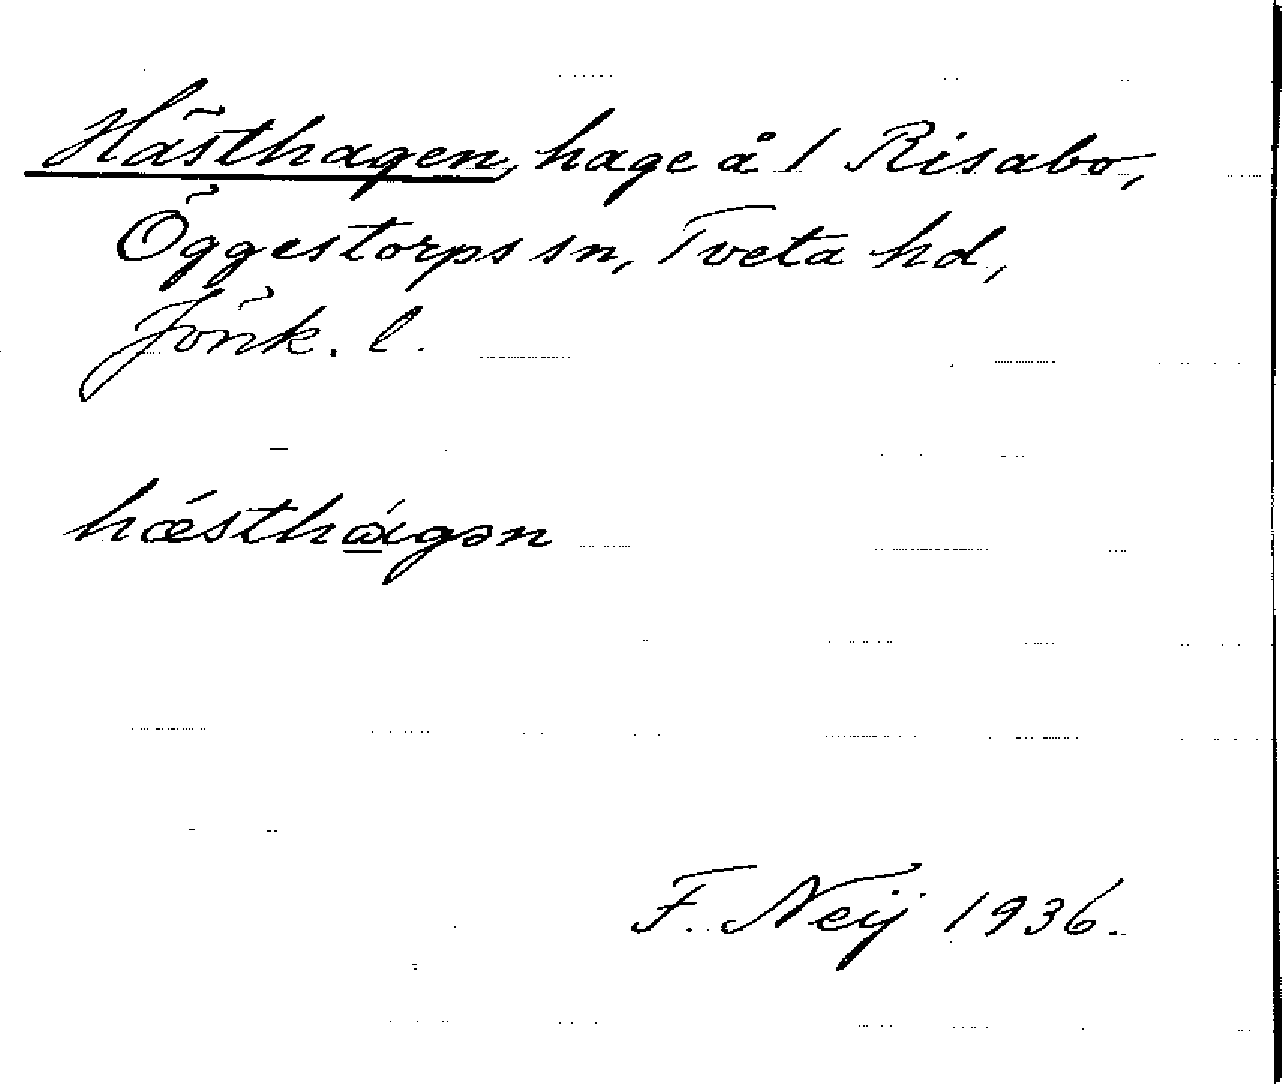 Hästhagen, hage å 1 Risabo,
Öggestorps sn, Tveta hd,
Jönk. l.
hǽsthɑ́gən
F. Neij 1936.